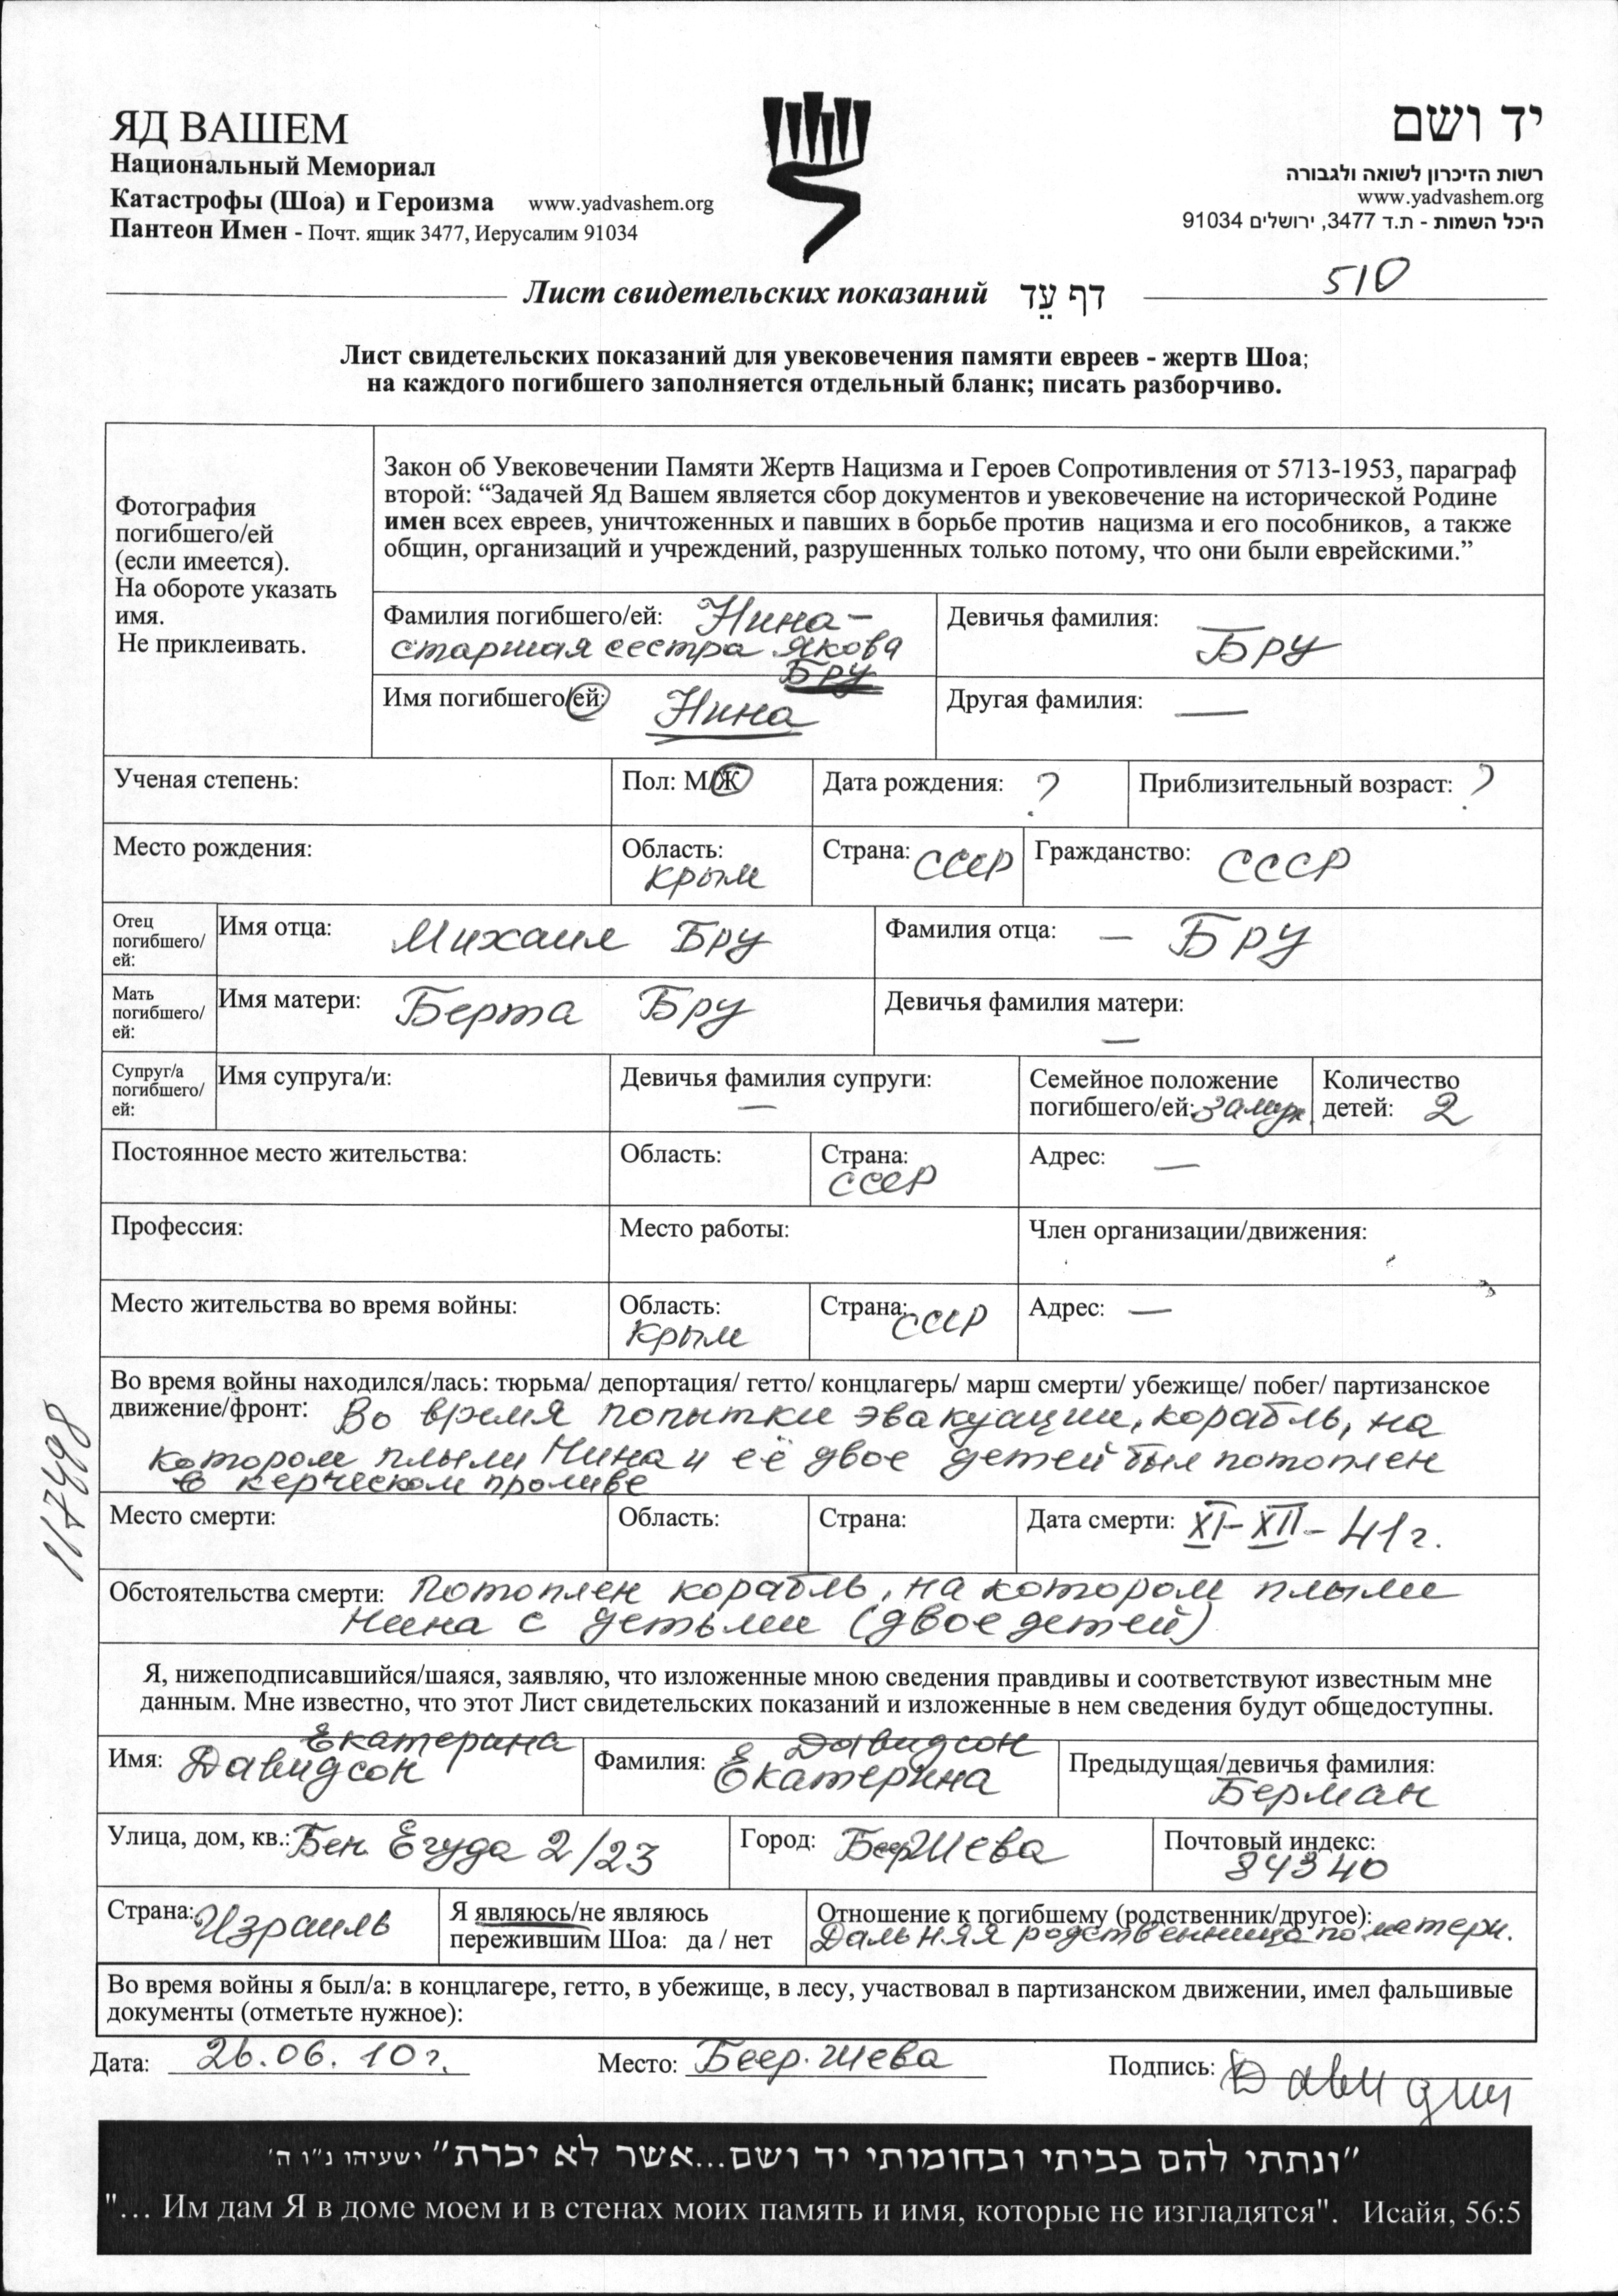 ЯД ВАШЕМ
Национальный Мемориал
Катастрофы (Шоа) и Героизма www.yadvashem.org
Пантеон Имен - Почт. ящик 3477, Иерусалим 91034
יד ושם
רשות הזיכרון לשואה ולגבורה
www.yadvashem.org
היכל השמות - ת.ד 3477, ירושלים 91034
Лист свидетельских показаний דף עֵד 510
Лист свидетельских показаний для увековечения памяти евреев - жертв Шоа;
на каждого погибшего заполняется отдельный бланк; писать разборчиво.
Фотография
погибшего/ей
(если имеется).
На обороте указать
имя.
Не приклеивать.
Закон об Увековечении Памяти Жертв Нацизма и Героев Сопротивления от 5713-1953, параграф
второй: “Задачей Яд Вашем является сбор документов и увековечение на исторической Родине
имен всех евреев, уничтоженных и павших в борьбе против нацизма и его пособников, а также
общин, организаций и учреждений, разрушенных только потому, что они были еврейскими.”
Фамилия погибшего/ей: Нина -
старшая сестра Якова
Бру
Девичья фамилия:
Бру
Имя погибшего/ей: Нина
Другая фамилия: —
Ученая степень:
Пол: М/Ж
Дата рождения: ?
Приблизительный возраст: ?
Место рождения:
Область:
Крым
Страна: СССР
Гражданство: СССР
Отец
погибшего/
ей:
Имя отца: Михаил Бру
Фамилия отца: — Бру
Мать
погибшего/
ей:
Имя матери: Берта Бру
Девичья фамилия матери:
—
Супруг/а
погибшего/
ей:
Имя супруга/и:
Девичья фамилия супруги:
—
Семейное положение
погибшего/ей: замуж.
Количество
детей: 2
Постоянное место жительства:
Область:
Страна:
СССР
Адрес: —
Профессия:
Место работы:
Член организации/движения:
Место жительства во время войны:
Область:
Крым
Страна: СССР
Адрес: —
Во время войны находился/лась: тюрьма/ депортация/ гетто/ концлагерь/ марш смерти/ убежище/ побег/ партизанское
движение/фронт: Во время попытки эвакуации, корабль, на
котором плыли Нина и её двое детей был потоплен
в керческом проливе
117498
Место смерти:
Область:
Страна:
Дата смерти: XI-XII-41г.
Обстоятельства смерти: Потоплен корабль, на котором плыли
Нина с детьми (двое детей)
Я, нижеподписавшийся/шаяся, заявляю, что изложенные мною сведения правдивы и соответствуют известным мне
данным. Мне известно, что этот Лист свидетельских показаний и изложенные в нем сведения будут общедоступны.
Екатерина
Имя: Давидсон
Давидсон
Фамилия: Екатерина
Предыдущая/девичья фамилия:
Берман
Улица, дом, кв.: Бен Егуда 2/23
Город: БеерШева
Почтовый индекс:
84340
Страна: Израиль
Я являюсь/не являюсь
пережившим Шоа: да / нет
Отношение к погибшему (родственник/другое):
Дальняя родственница по матери.
Во время войны я был/а: в концлагере, гетто, в убежище, в лесу, участвовал в партизанском движении, имел фальшивые
документы (отметьте нужное):
Дата: 26.06.10г. Место: Беер-Шева Подпись:
"ונתתי להם בביתי ובחומותי יד ושם...אשר לא יכרת" ישעיהו נ"ו ה'
"... Им дам Я в доме моем и в стенах моих память и имя, которые не изгладятся". Исайя, 56:5